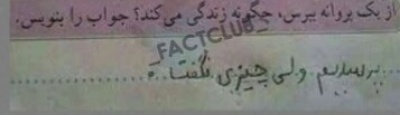 از یک پروانه بپرس، چگونه زندگی می‌کند؟ جواب را بنویس.
_FACTCLUB_
پرسیدیم ولی چیزی نگفت.